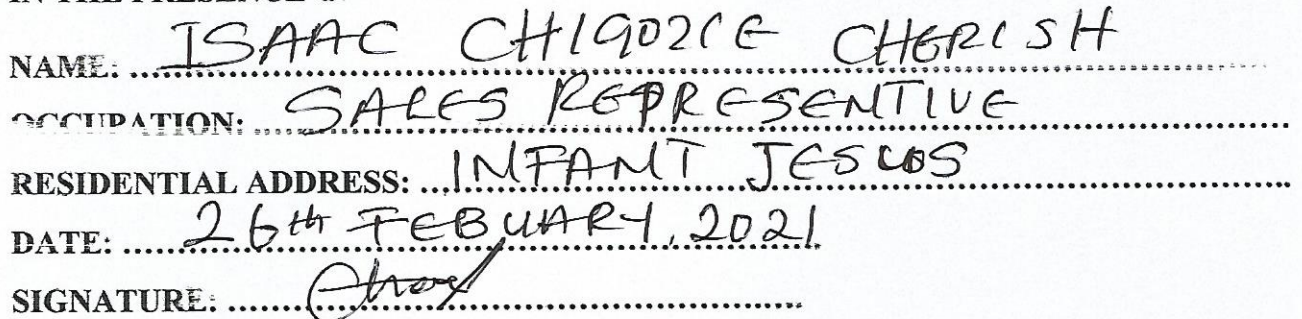 IN THE PRESENCE
NAME: ISAAC CHIGOZIE CHERISH
OCCUPATION: SALES REPRESENTIVE
RESIDENTIAL ADDRESS: INFANT JESUS
DATE: 26th FEBUARY, 2021
SIGNATURE: